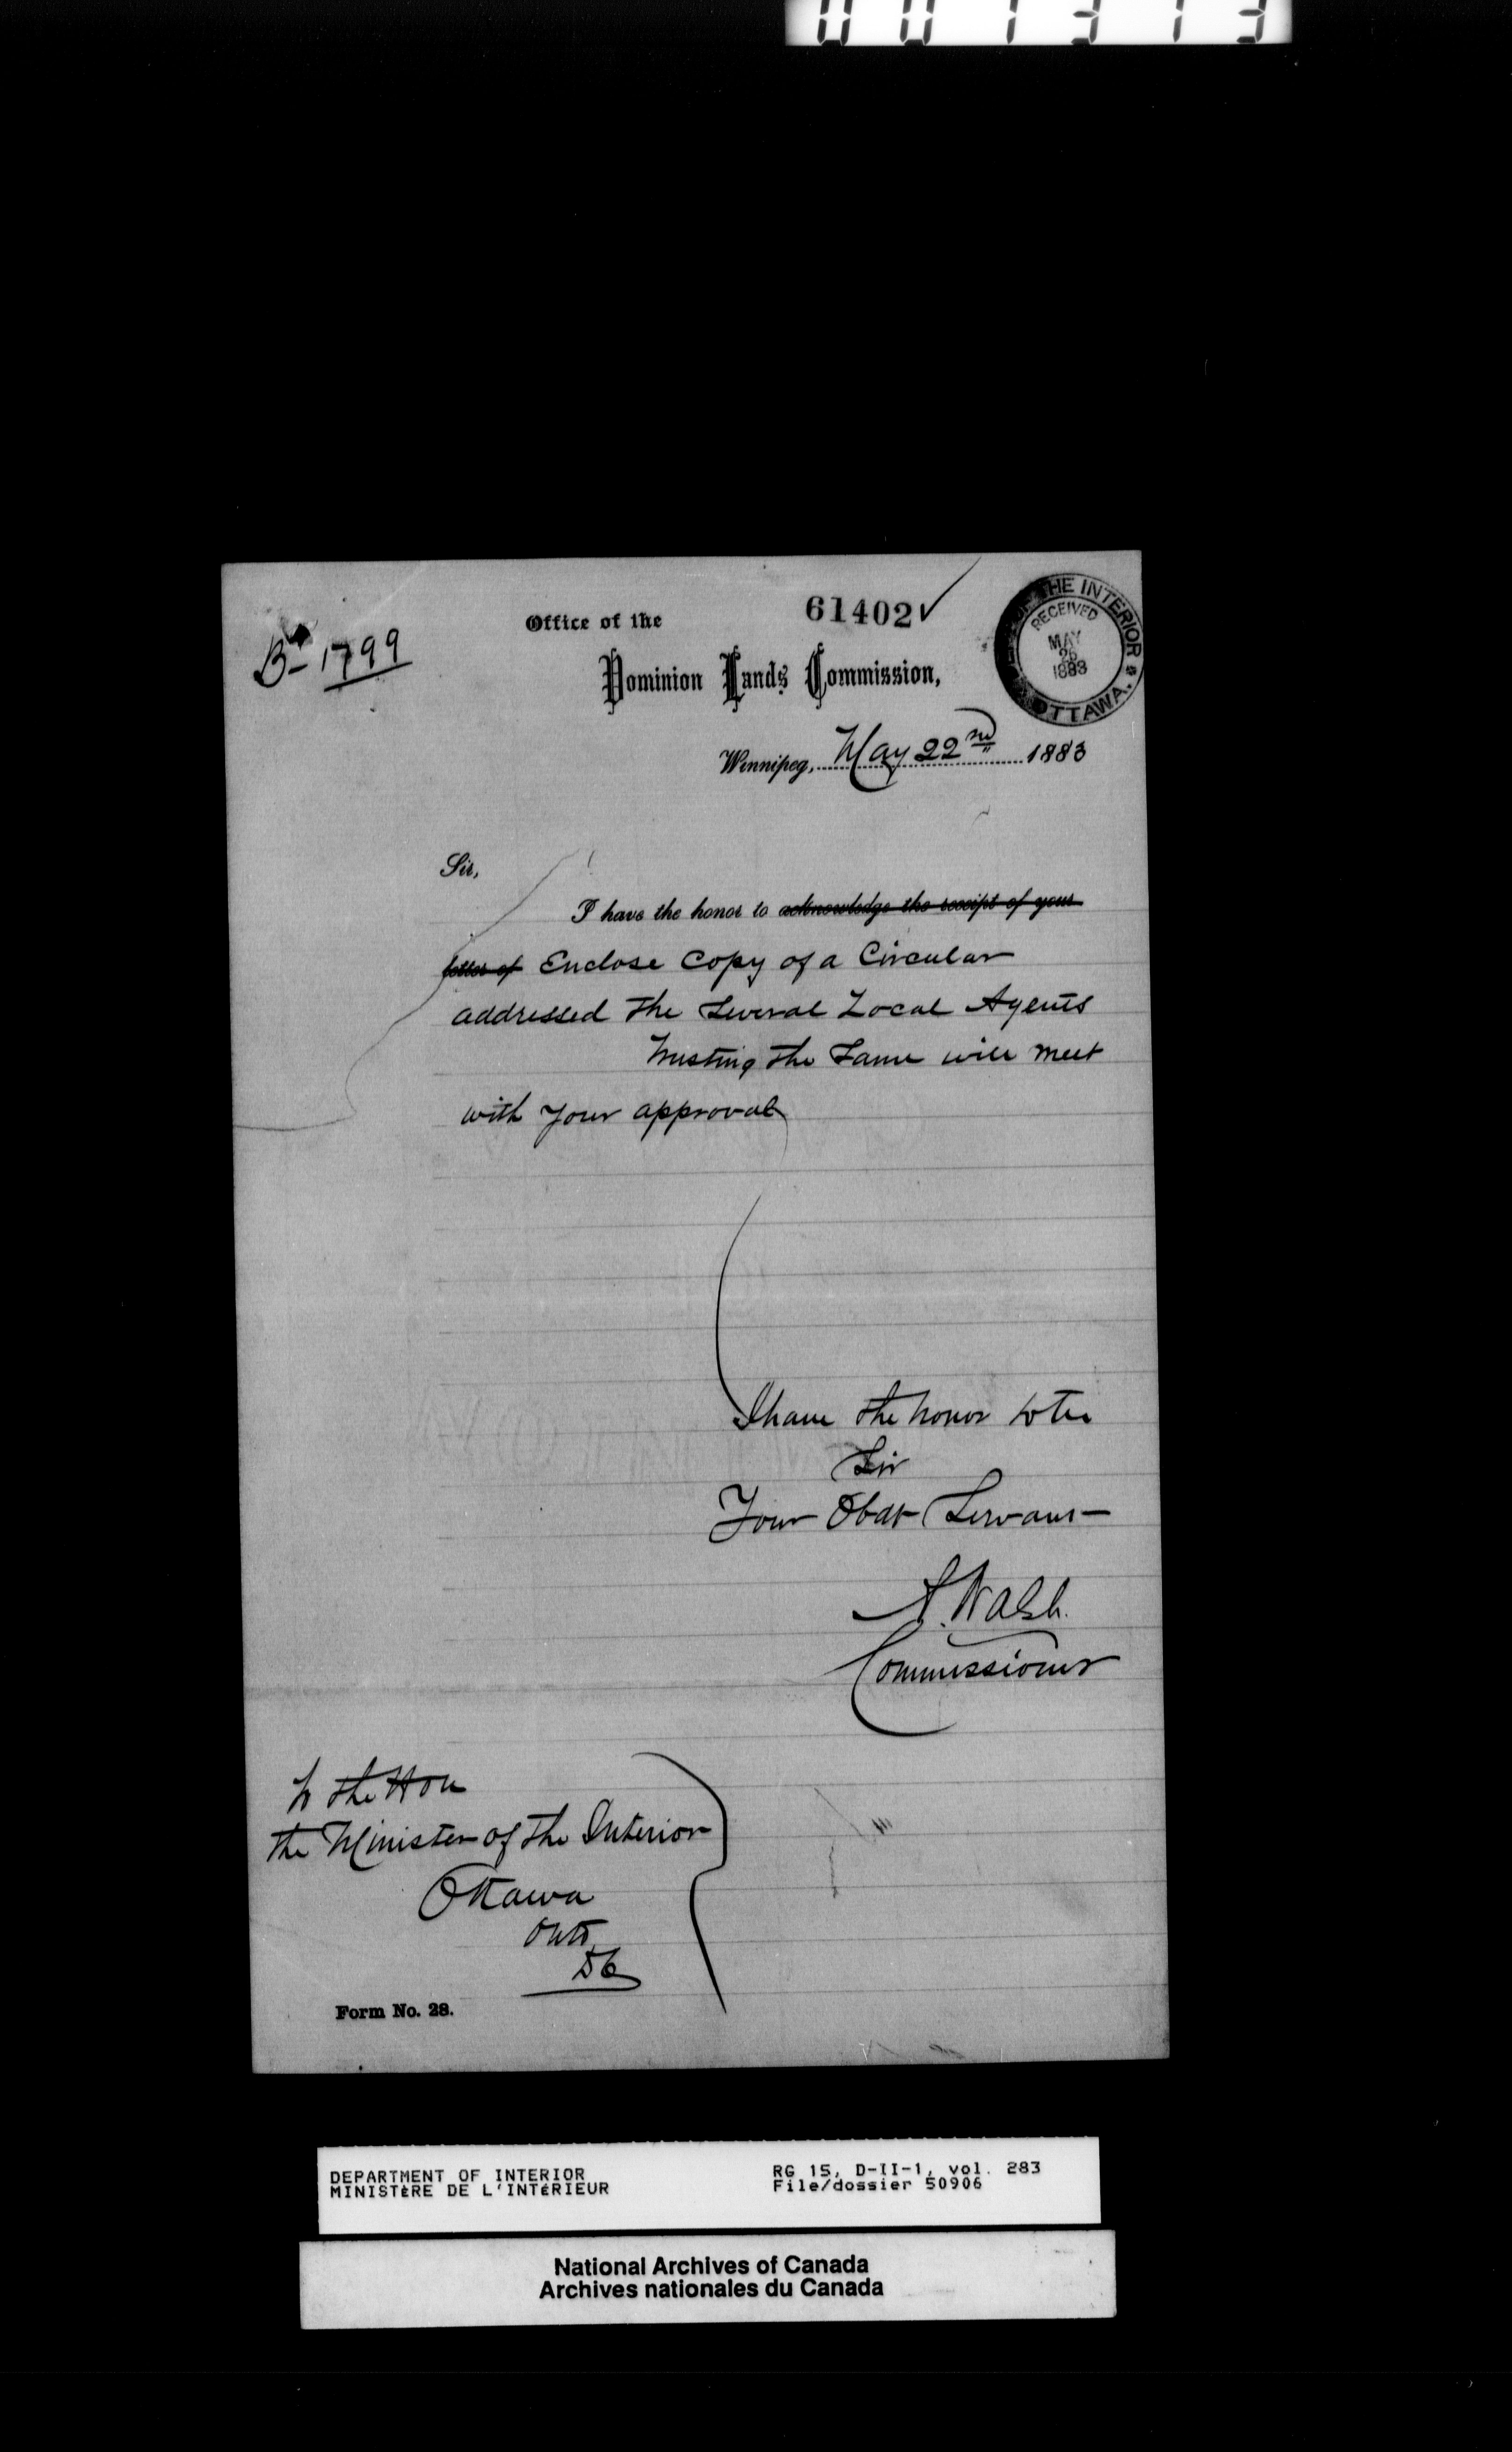 001313
61402
B 1799
Office of the
Dominion Lands Commission,
THE INTERIOR
RECEIVED
MAY
26
1883
OTTAWA.
Winnipeg, May 22nd 1883
Sir,
I have the honor to acknowledge the receipt of your
letter of Enclose Copy of a Circular
addressed the Several Local Agents
Trusting the Same will meet
with your approval
I have the honor to be
Sir
Your Obdt Servant
A. Walsh.
Commissioner
To the Hon
the Minister of the Interior
Ottawa
Ont
Form No. 28.
DEPARTMENT OF INTERIOR
MINISTÈRE DE L'INTÉRIEUR
RG 15, D-II-1, vol. 283
File/dossier 50906
National Archives of Canada
Archives nationales du Canada